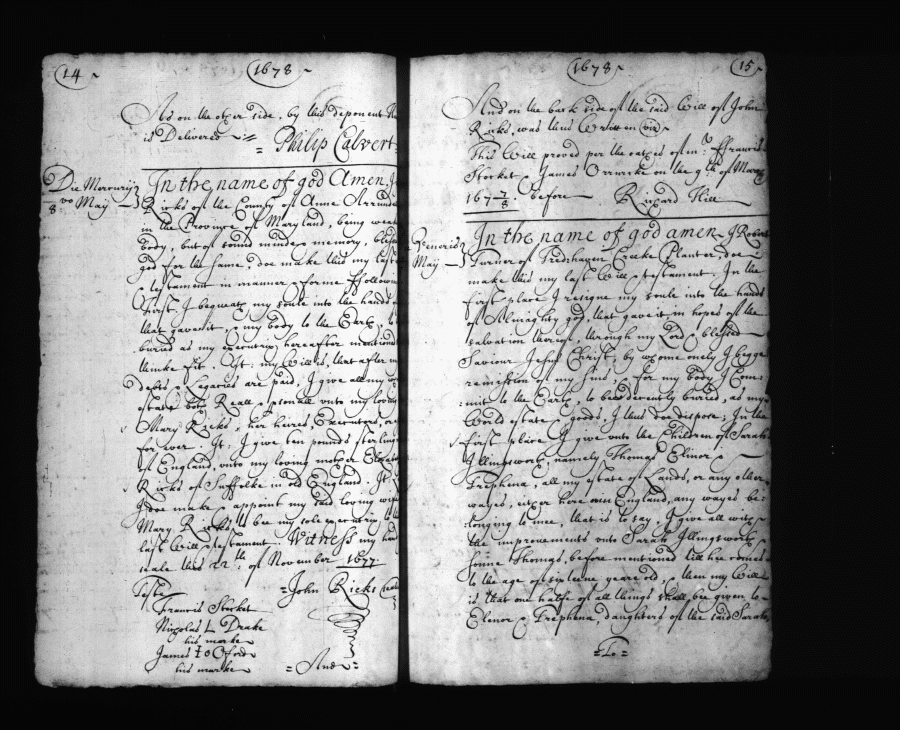 14
1678
As on the other side, by this deponent
is Delivered
= Philip Calvert
Die Mercurij
8vo May
In the name of god Amen, J
Ricks of the County of Anne Arrundell
in the Province of Maryland, being weak
body, but of sound minde & memory, blessed
god for the same, doe make this my last
& testament in manner & forme following
First, I bequeath my soule into the hands
that gave it, & my body to the Earth, to
buried as my executrix hereafter mentioned
thinke fit. It. my Will is, that after my
debts & Legacies are paid, I give all my
estate both Reall & p'sonall unto my loving
Mary Ricks, her heires, Executors, or
for ever. It. I give ten pounds sterling
of England, unto my loving mother
Ricks of Suffolke in old England. It.
I doe make & appoint my said loving wife
Mary Ricks to bee my sole executrix
last Will & testament. Witness my hand
seale this 22th. of November 1677
Teste
= John Ricks
Francis Stocket
Nicholas L Drake
his marke
James
his marke
= And =
1678
15
And on the back side of the said Will of John
Ricks, was thus Written (viz)
This Will proved per the oathes of mr. Francis
Stocket & James on the 9th of May
167 7/8 before Richard Hill
May
In the name of god amen I Robert
Turder of Creeke Planter, doe
make this my last Will & testament. In the
first place I resigne my soule into the hands
of Almighty god, that gave it, in hopes of the
salvation thereof, through my Lord & blessed
Saviour Jesus Christ, by whome onely I begge
remission of my sins, & for my body I Com-
mit to the Earth, to be decently buried, as my
World estate & goods, I thus doe dispose; In the
first place I give unto the Children of Sarah
Illingsworth, namely Thomas Elinor &
Trephena, all my estate of Lands, or any other
wayes, either here or in England, any wayes be-
longing to mee, that is to say, I give all with
the improvements unto Sarah Illingsworths
sonne Thomas, before mentioned till hee comes
to the age of sixteene yeares old, & then my Will
is, that one halfe of all things shall bee given to
Elenor & Trephena, daughters of the said Sarah
= To =